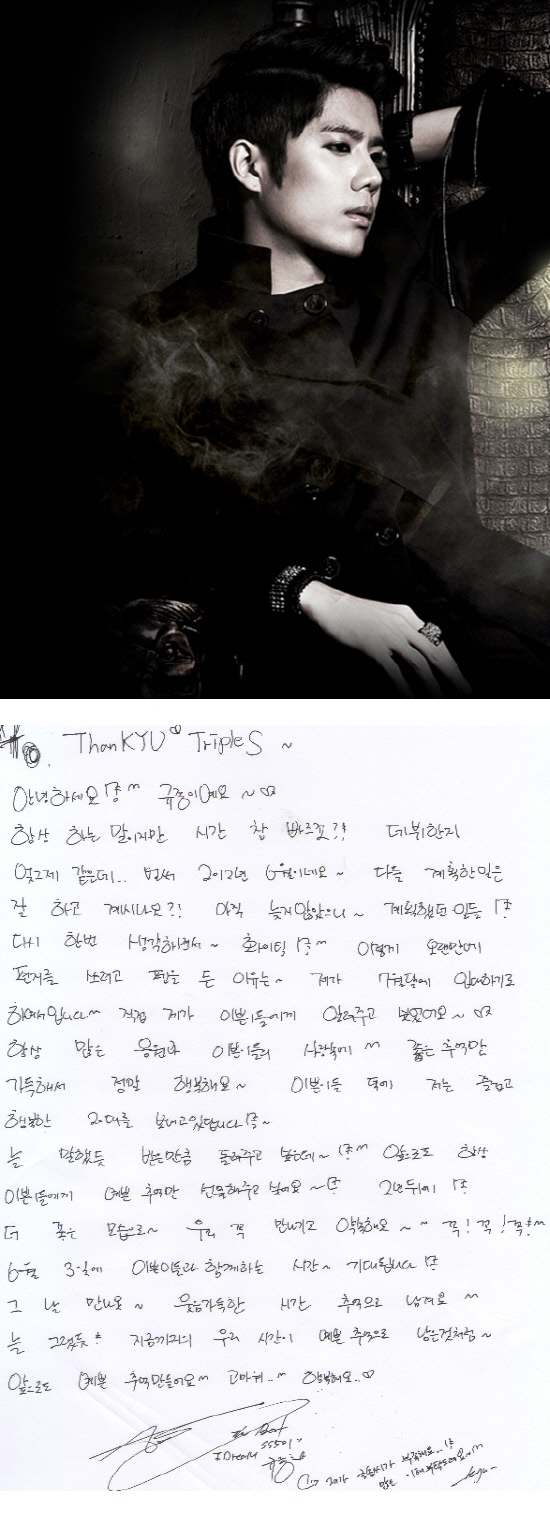 ThanKYU TripleS ~
안녕하세요!? ^^ 규종이에요 ~ ♡
항상 하는 말이지만 시간 참 빠르죠?? 데뷔한지
엊그제 같은데.. 벌써 2012년 6월이네요~ 다들 계획한일은
잘 하고 계시나요?! 아직 늦지않았으니~ 계획했던 일들
다시 한번 생각하면서~ 화이팅 ^^ 이렇게 오랜만에
편지를 쓰려고 펜을 든 이유는~ 제가 7월달에 입대하기로
하여서입니다^^ 직접 제가 이쁜이들에게 알려주고 싶었어요~ ♡
항상 많은 응원과 이쁜이들의 사랑속에 ^^ 좋은 추억만
가득해서 정말 행복해요~ 이쁜이들 덕에 저는 즐겁고
행복한 20대를 보내고있답니다~
늘 말했듯 받은만큼 돌려주고 싶은데~ ^^ 앞으로도 항상
이쁜이들에게 예쁜 추억만 선물해주고 싶어요~ 2년뒤에
더 좋은 모습으로~ 우리 꼭 만나기로 약속해요~ 꼭! 꼭! 꼭!
6월 3일에 이쁜이들과 함께하는 시간~ 기대됩니다
그 날 만나요~ 웃음가득한 시간 추억으로 남겨요 ^^
늘 그랬듯 지금까지의 우리 시간이 예쁜 추억으로 남은것처럼~
앞으로도 예쁜 추억만들어요^^ 고마워..^^ 행복해요..♡
SS501
규종
제가 부족해요..
많은 이해부탁드려요~^^
kyu~